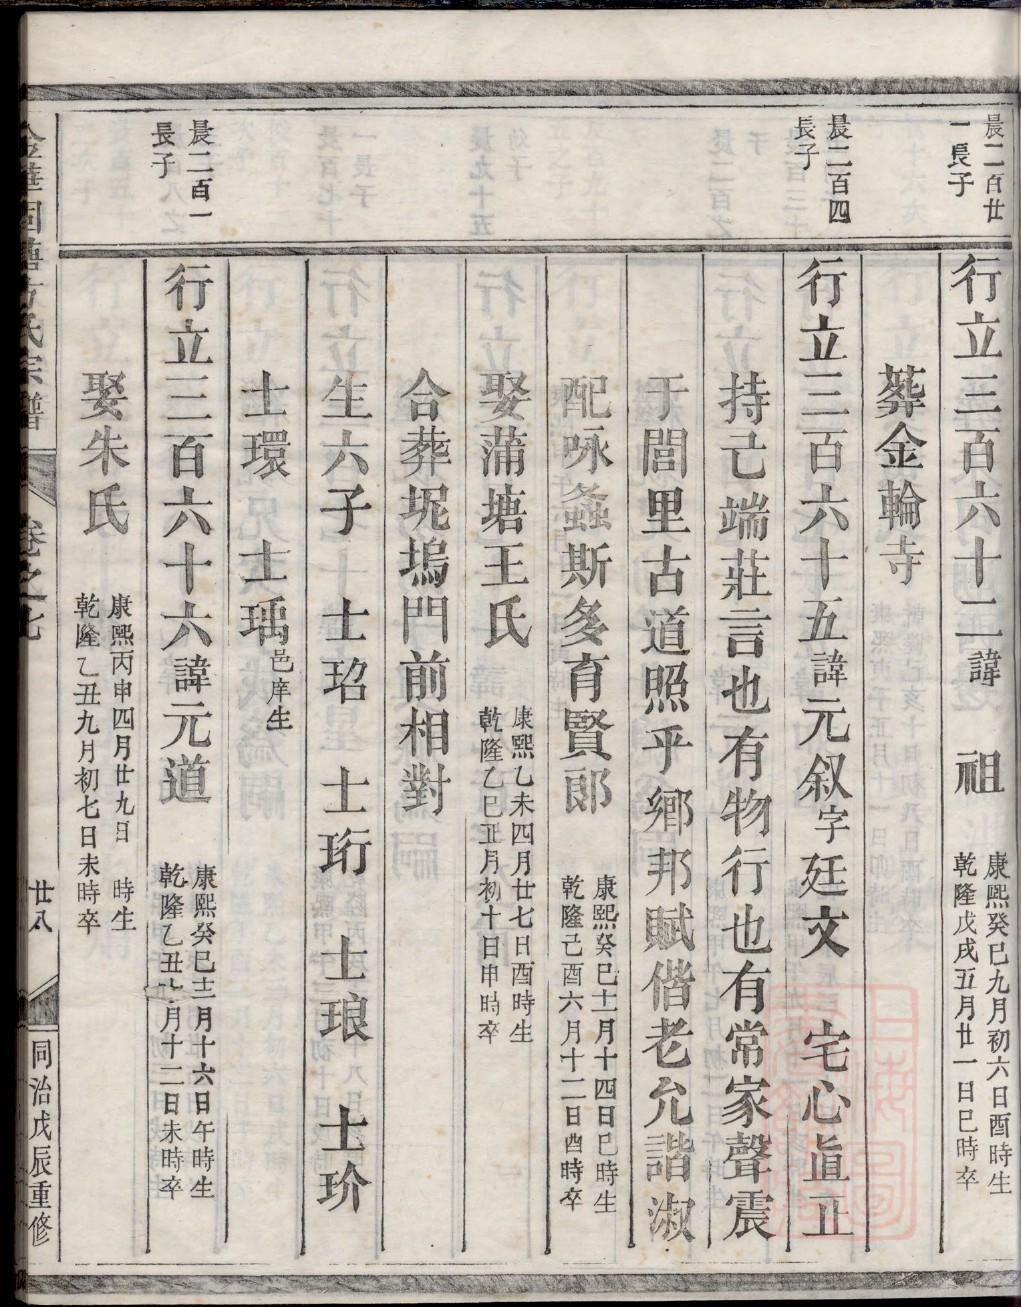 晨二百廿
一長子
行立三百六十二諱　祖
康熙癸巳九月初六日酉時生
乾隆戊戌五月廿一日巳時卒
葬金輪寺
晨二百四
長子
行立三百六十五諱元叙字廷文　宅心直正
持己端莊言也有物行也有常家聲震
于閭里古道照乎鄉邦賦偕老允諧淑
配咏螽斯多育賢郎
康熙癸巳十一月十四日巳時生
乾隆己酉六月十二日酉時卒
娶蒲塘王氏
康熙乙未四月廿七日酉時生
乾隆乙巳正月初十日申時卒
合葬坭塢門前相對
生六子　士玿　士珩　士琅　士玠
士環　士瑀邑庠生
晨二百一
長子
行立三百六十六諱元道
康熙癸巳十二月十六日午時生
乾隆乙丑十一月十二日未時卒
娶朱氏
康熙丙申四月廿九日　時生
乾隆乙丑九月初七日未時卒
金華固塘方氏宗譜
卷之七
廿八
同治戊辰重修